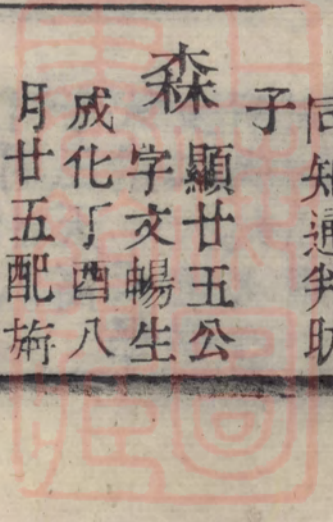 同知通判
子
森
顯廿五公
字文暢生
成化丁酉八
月廿五配